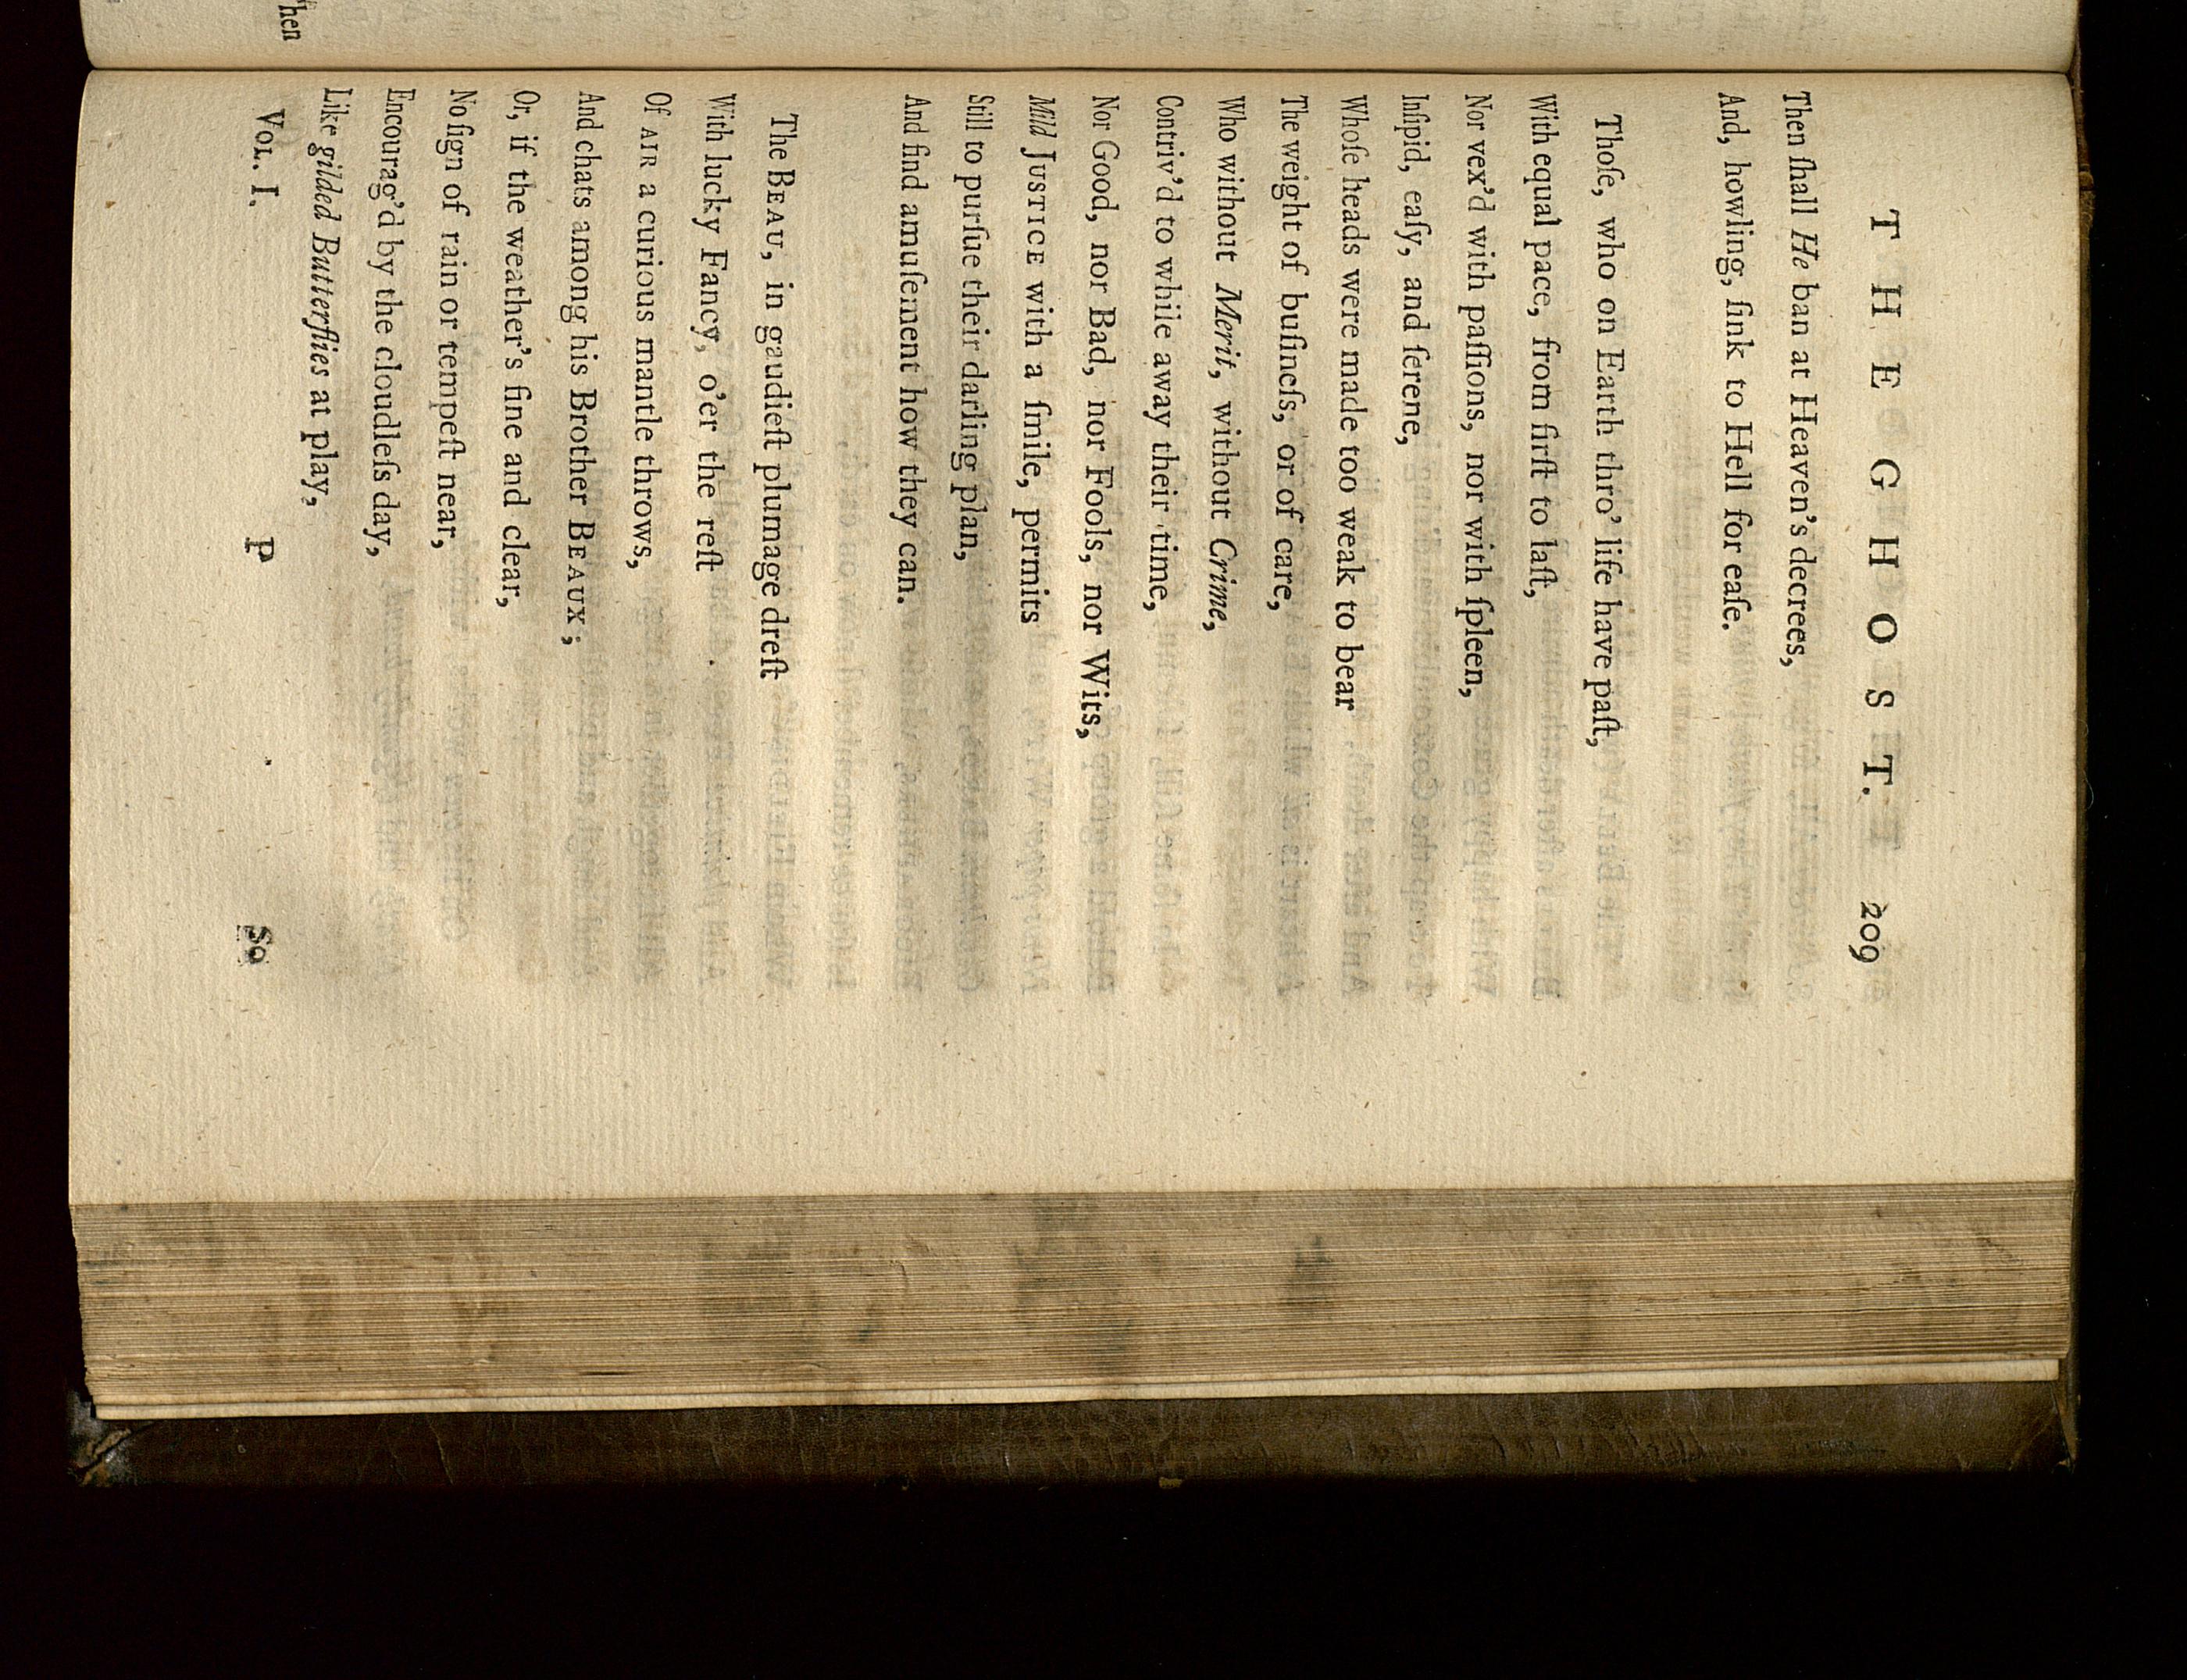 THE GHOST. 209
Then ſhall He ban at Heaven's decrees,
And, howling, ſink to Hell for eaſe.
Thoſe, who on Earth thro' life have paſt,
With equal pace, from firſt to laſt,
Nor vex'd with paſſions, nor with ſpleen,
Inſipid, eaſy, and ſerene,
Whoſe heads were made too weak to bear
The weight of buſineſs, or of care,
Who without Merit, without Crime,
Contriv'd to while away their time,
Nor Good, nor Bad, nor Fools, nor Wits,
Mild JUSTICE with a ſmile, permits
Still to purſue their darling plan,
And find amuſement how they can.
The BEAU, in gaudieſt plumage dreſt
With lucky Fancy, o'er the reſt
Of AIR a curious mantle throws,
And chats among his Brother BEAUX;
Or, if the weather's fine and clear,
No ſign of rain or tempeſt near,
Encourag'd by the cloudleſs day,
Like gilded Butterflies at play,
VOL. I. P So
hen